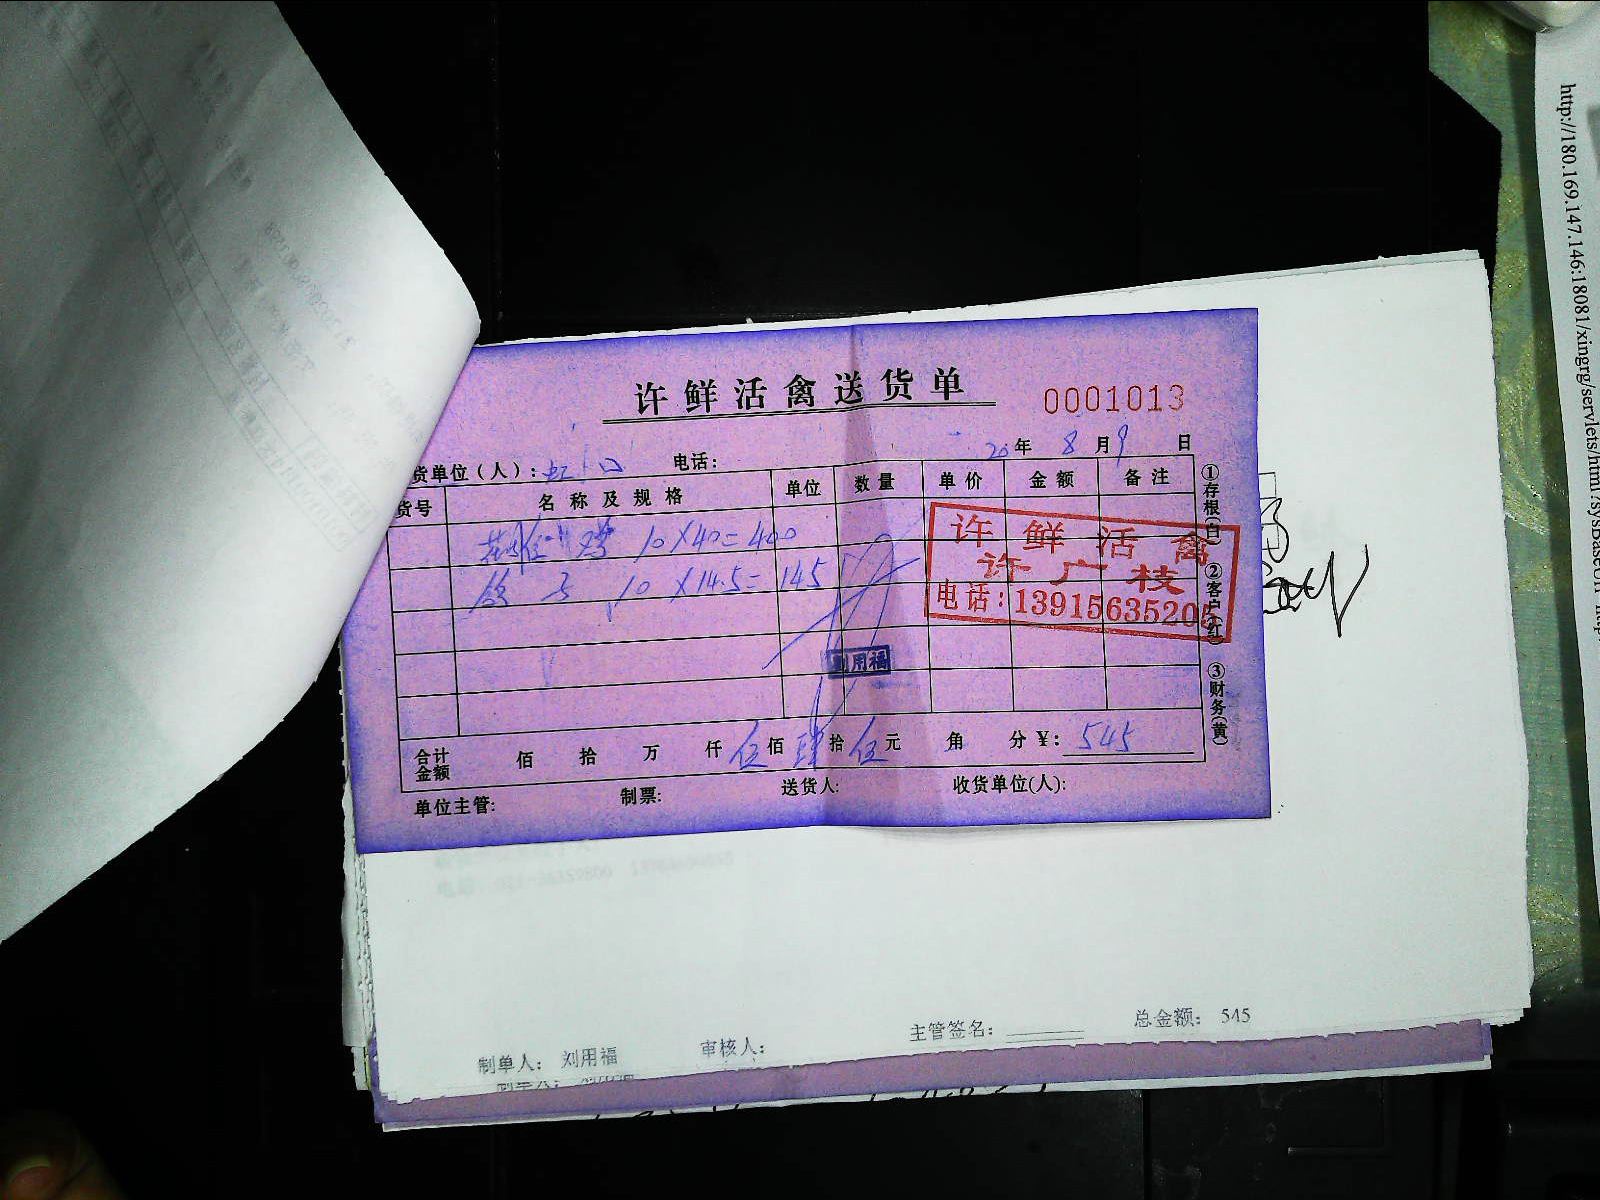 许鲜活禽送货单
0001013
20年8月9日
货单位(人): 虹口 电话:
货号 名称及规格 单位 数量 单价 金额 备注
10×40=400
鸽子 10×14.5=145
许鲜活禽
许广枝
电话:13915635205
刘用福
①存根(白) ②客户(红) ③财务(黄)
合计金额 佰 拾 万 仟 伍佰 肆拾 伍元 角 分 ¥: 545
单位主管: 制票: 送货人: 收货单位(人):
主管签名: 总金额: 545
制单人: 刘用福 审核人:
http://180.169.147.146:18081/xingrg/servlets/html?sysBaseUrl=http: